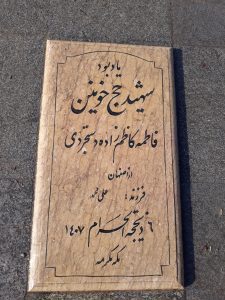 یادبود
شهید حج خونین
فاطمه کاظم زاده دستجردی
از اصفهان
فرزند: علی محمد
۶ ذیحجة الحرام ۱۴۰۷
مکه مکرمه